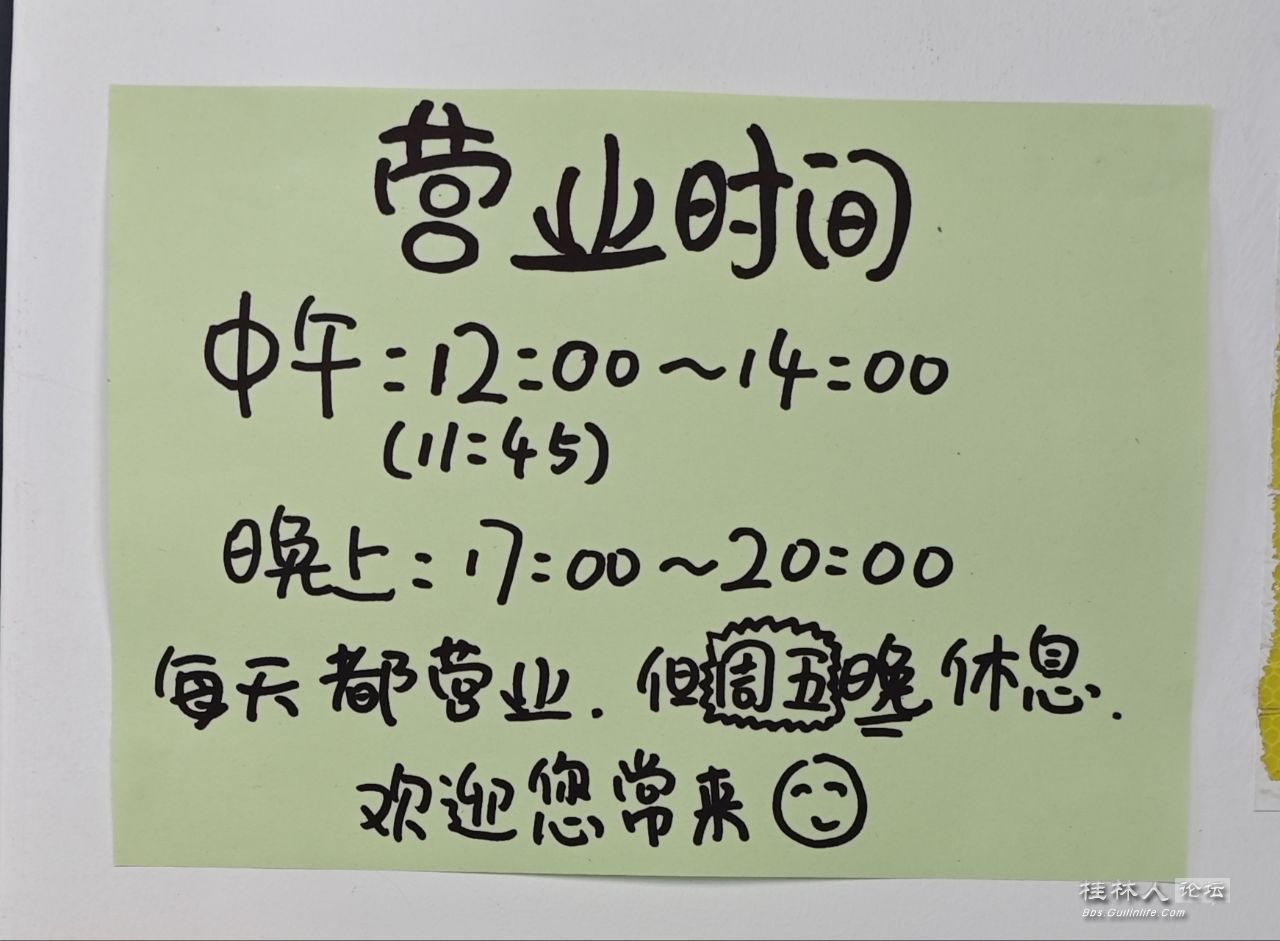 营业时间
中午:12:00~14:00
(11:45)
晚上:17:00~20:00
每天都营业.但周五晚休息.
欢迎您常来
桂林人论坛
Bbs.Guilinlife.Com